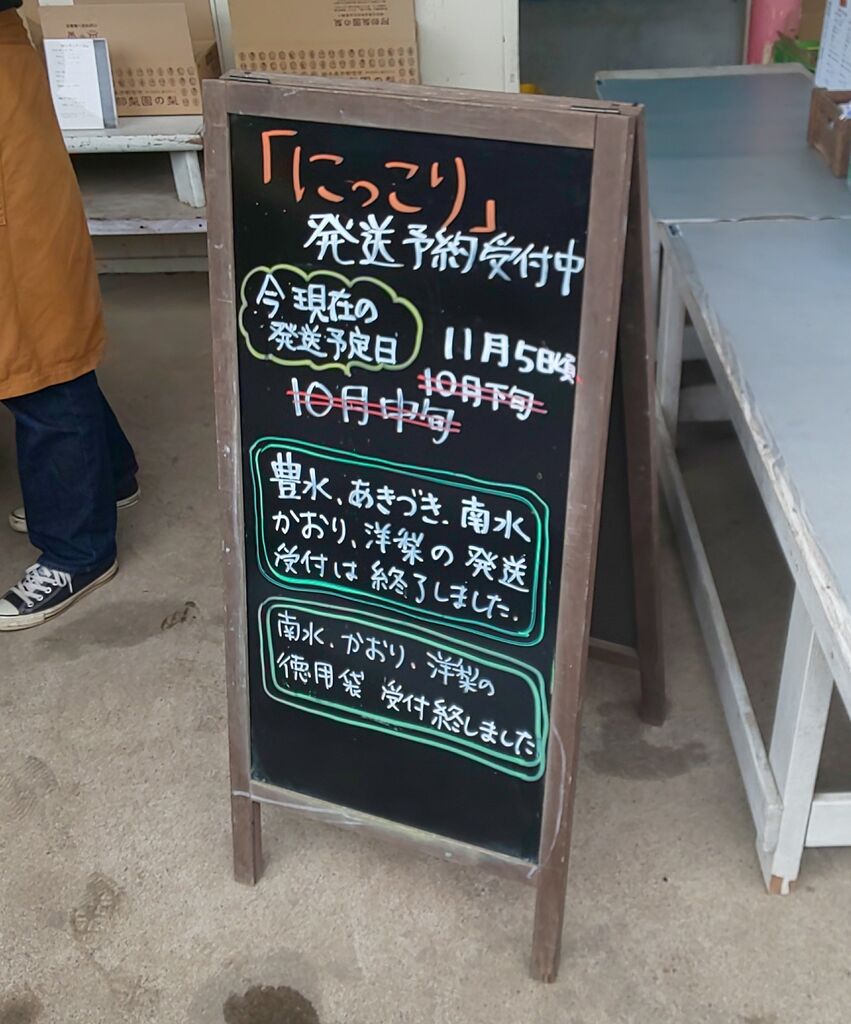 阿部梨園の梨
部梨園の梨
「にっこり」
発送予約受付中
今現在の
発送予定日
11月5日頃
10月下旬
10月中旬
豊水、あきづき、南水
かおり、洋梨の発送
受付は終了しました.
南水、かおり、洋梨の
徳用袋 受付終しました